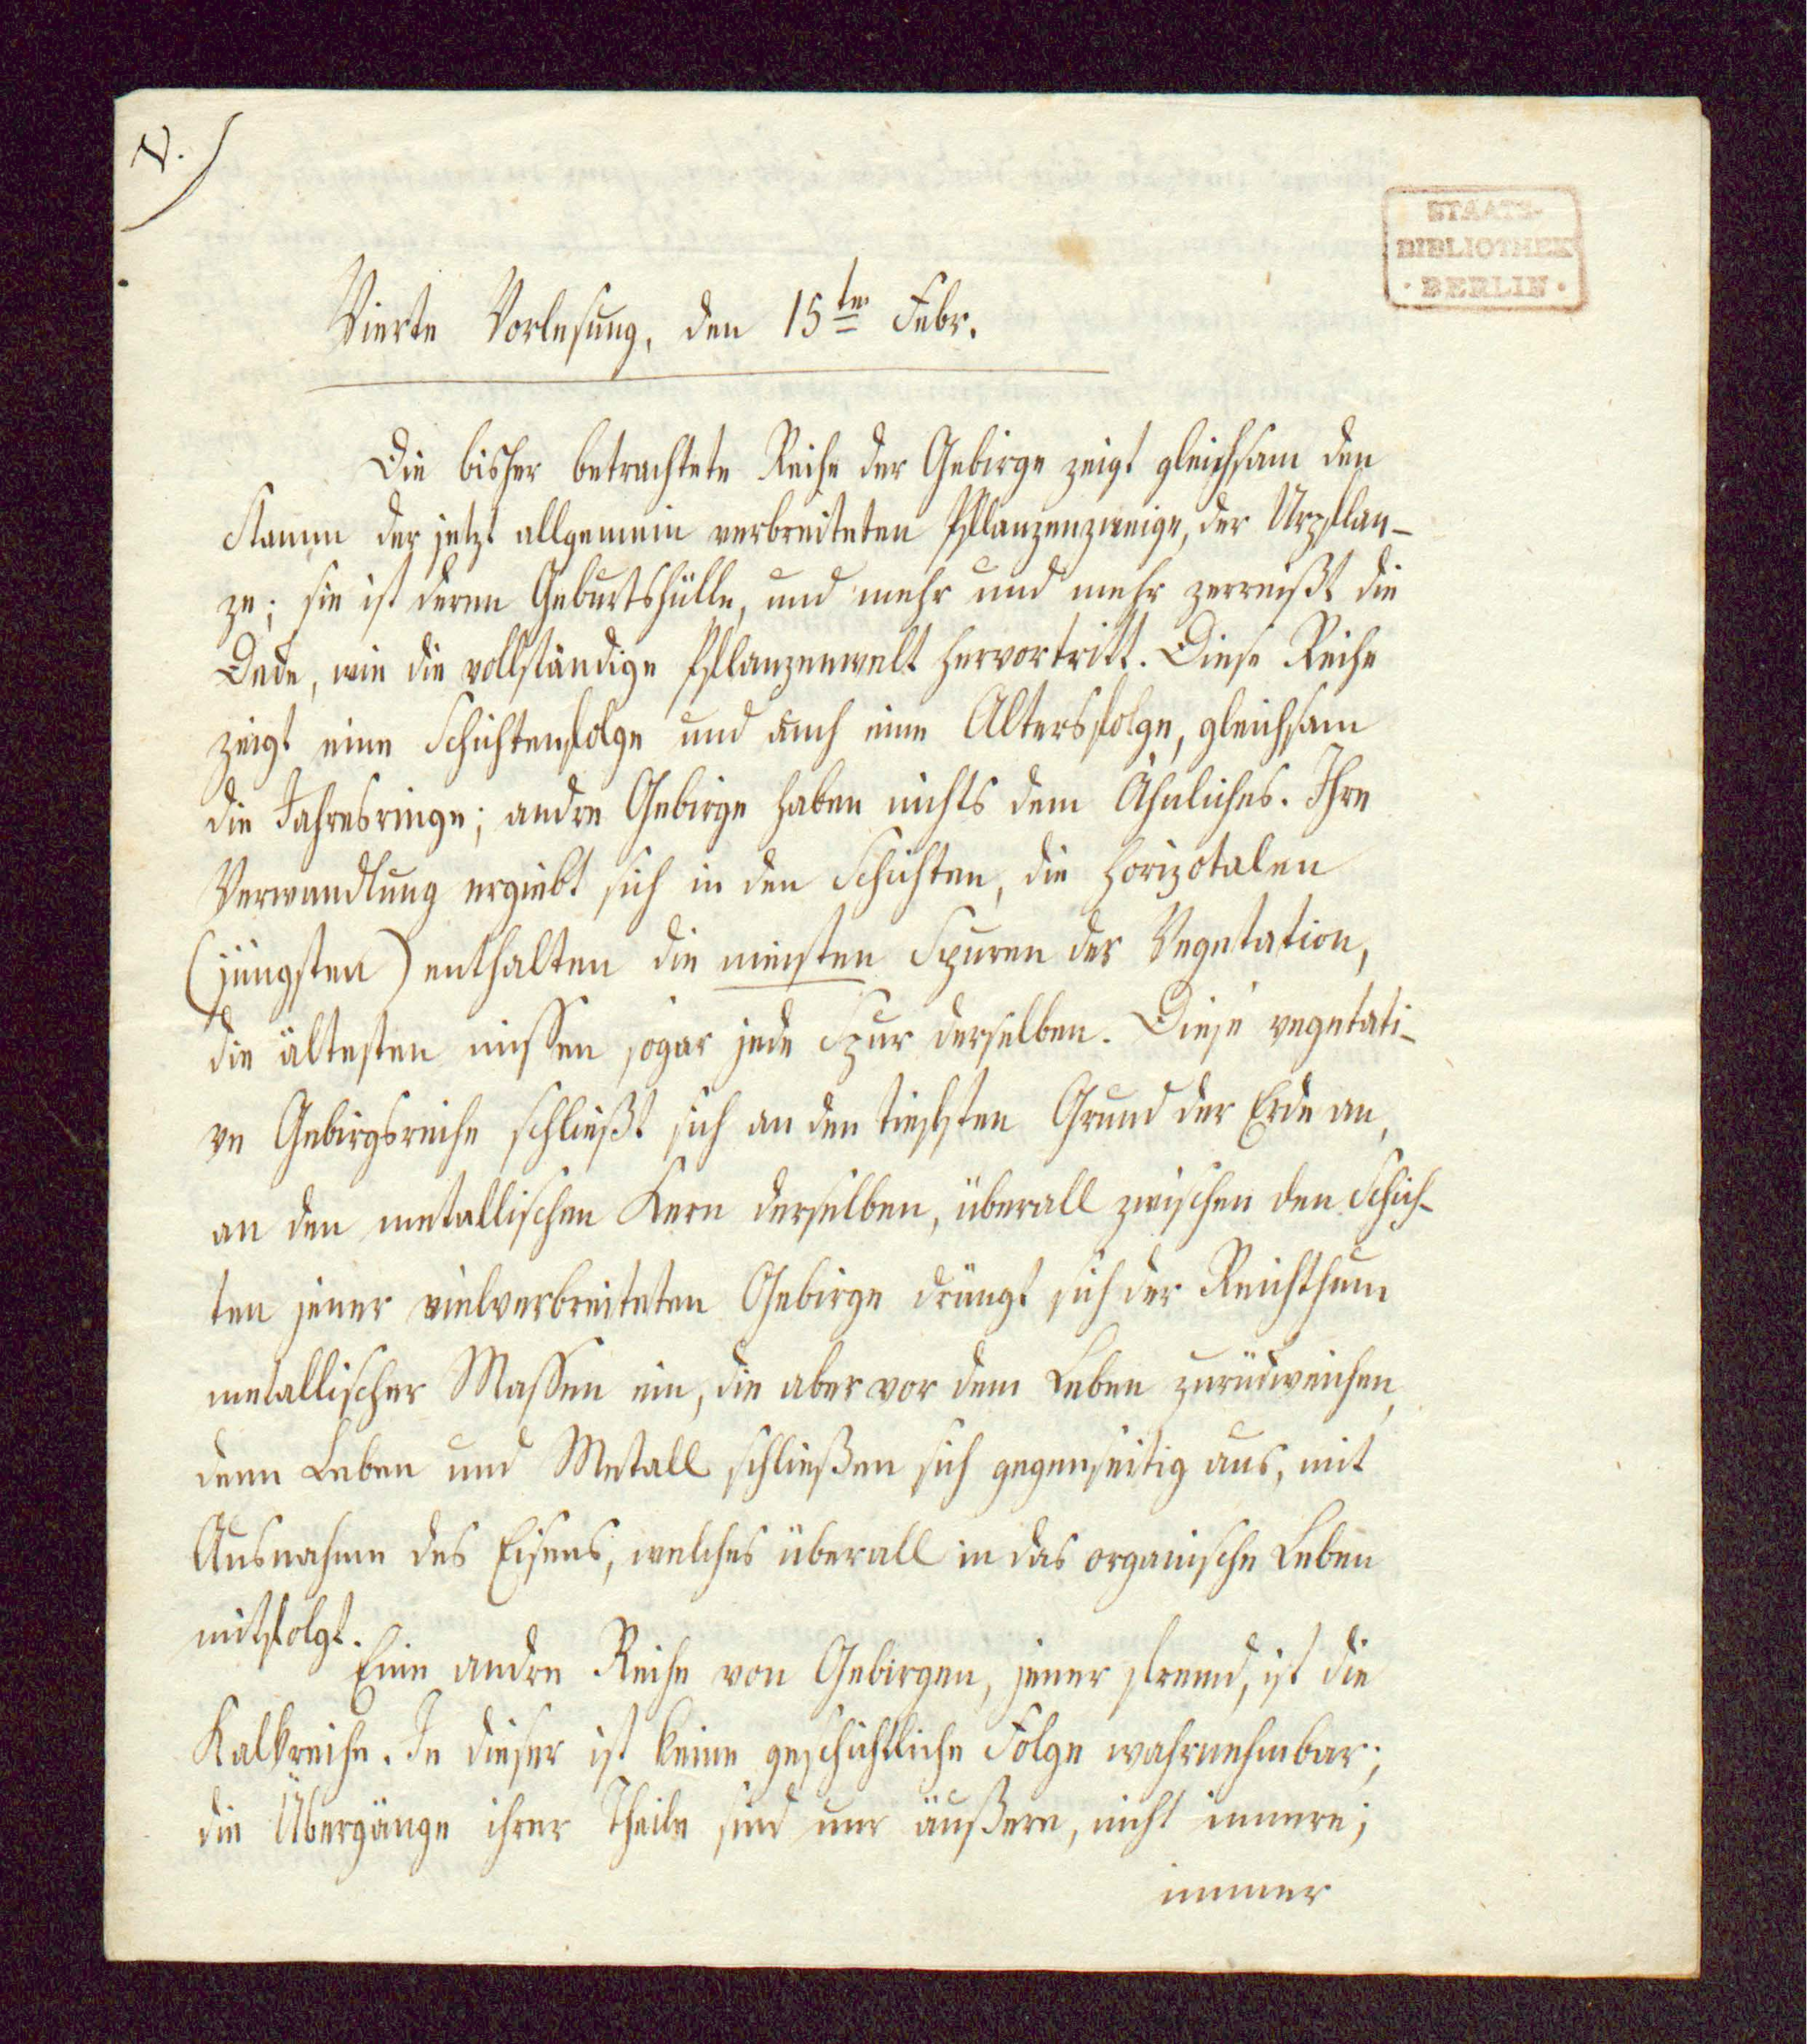 V.)
STAATS-
BIBLIOTHEK
· BERLIN ·
Vierte Vorlesung, den 15ten Febr.
Die bisher betrachtete Reihe der Gebirge zeigt gleichsam den
Stamm der jetzt allgemein verbreiteten Pflanzenzweige, der Urpflan-
ze; sie ist deren Geburtshülle, und mehr und mehr zerreißt die
Decke, wie die vollständige Pflanzenwelt hervortritt. Diese Reihe
zeigt eine Schichtenfolge und auch eine Altersfolge, gleichsam
die Jahresringe; andre Gebirge haben nichts dem Ähnliches. Ihre
Verwandlung ergiebt sich in den Schichten, die horizotalen
(jüngsten) enthalten die meisten Spuren der Vegetation,
die ältesten missen sogar jede Spur derselben. Diese vegetati-
ve Gebirgsreihe schließt sich an den tiefsten Grund der Erde an,
an den metallischen Kern derselben, überall zwischen den Schich-
ten jener vielverbreiteten Gebirge drängt sich der Reichthum
metallischer Massen ein, die aber vor dem Leben zurückweichen,
denn Leben und Metall schließen sich gegenseitig aus, mit
Ausnahme des Eisens, welches überall in das organische Leben
mitfolgt.
Eine andre Reihe von Gebirgen, jener fremd, ist die
Kalkreihe. In dieser ist keine geschichtliche Folge wahrnehmbar;
die Übergänge ihrer Theile sind nur äußere, nicht innere;
immer